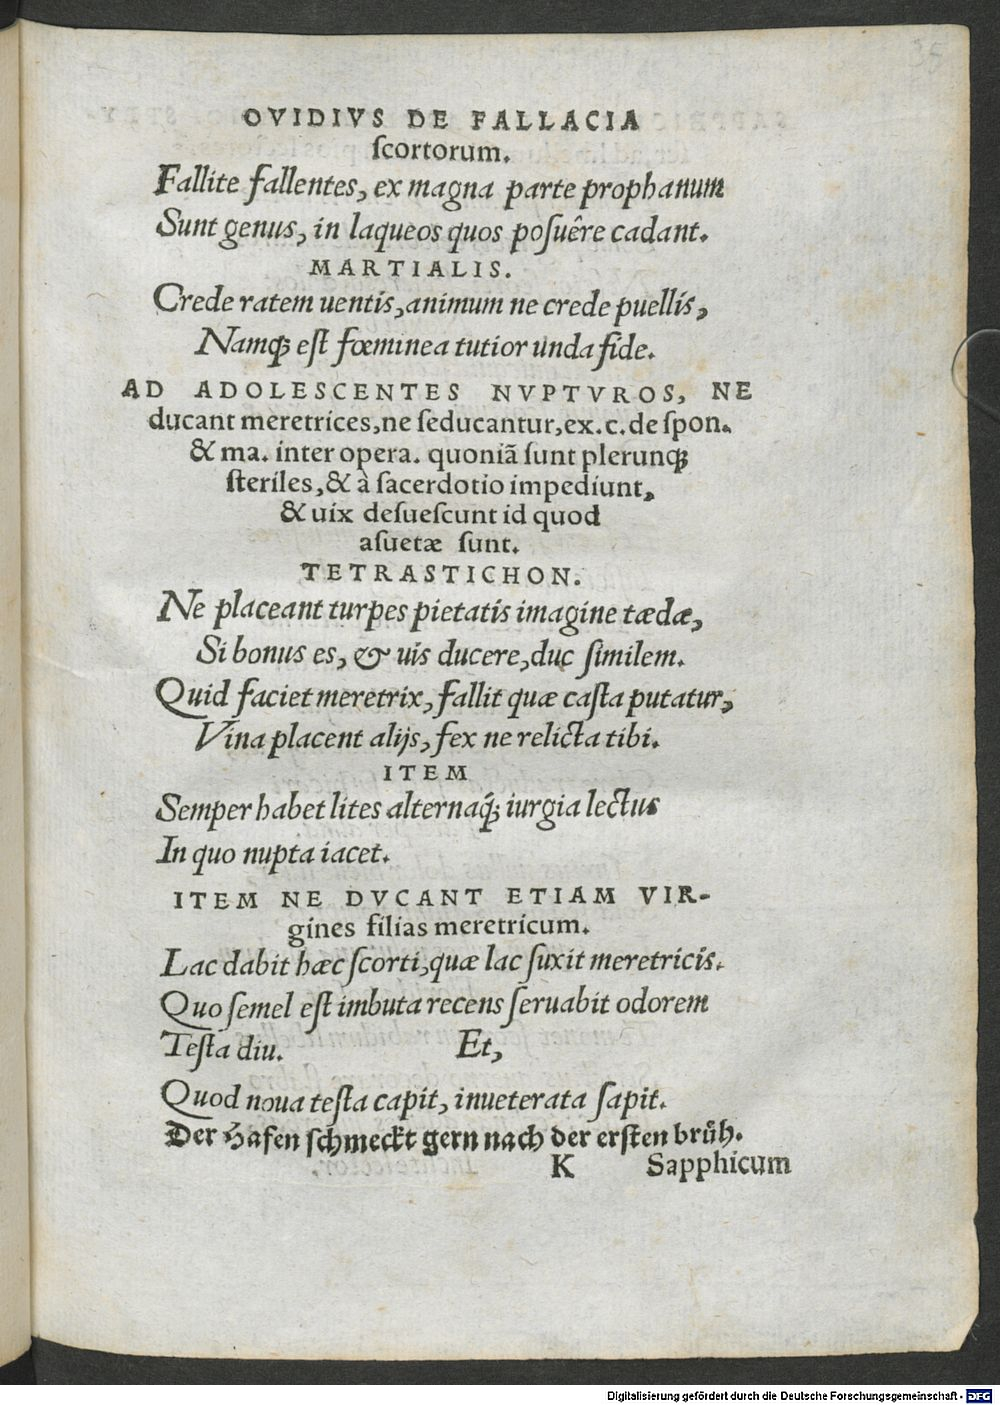 35
OVIDIVS DE FALLACIA
ſcortorum.
Fallite fallentes, ex magna parte prophanum
Sunt genus, in laqueos quos poſuêre cadant.
MARTIALIS.
Crede ratem uentis, animum ne crede puellis,
Namq; eſt fœminea tutior unda fide.
AD ADOLESCENTES NVPTVROS, NE
ducant meretrices, ne ſeducantur, ex. c. de ſpon.
& ma. inter opera. quoniã ſunt plerunq;
ſteriles, & à ſacerdotio impediunt,
& uix deſueſcunt id quod
aſuetæ ſunt.
TETRASTICHON.
Ne placeant turpes pietatis imagine tædæ,
Si bonus es, & uis ducere, duc ſimilem.
Quid faciet meretrix, fallit quæ caſta putatur,
Vina placent alijs, fex ne relicta tibi.
ITEM
Semper habet lites alternaq́; iurgia lectus
In quo nupta iacet.
ITEM NE DVCANT ETIAM VIR-
gines filias meretricum.
Lac dabit hæc ſcorti, quæ lac ſuxit meretricis.
Quo ſemel eſt imbuta recens ſeruabit odorem
Teſta diu. Et,
Quod noua teſta capit, inueterata ſapit.
Der Hafen ſchmeckt gern nach der erſten brůh.
K Sapphicum
Digitalisierung gefördert durch die Deutsche Forschungsgemeinschaft - DFG